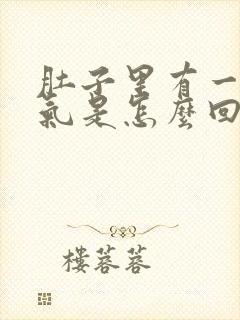 肚子里有一
氣是怎麼回
樓蓉蓉